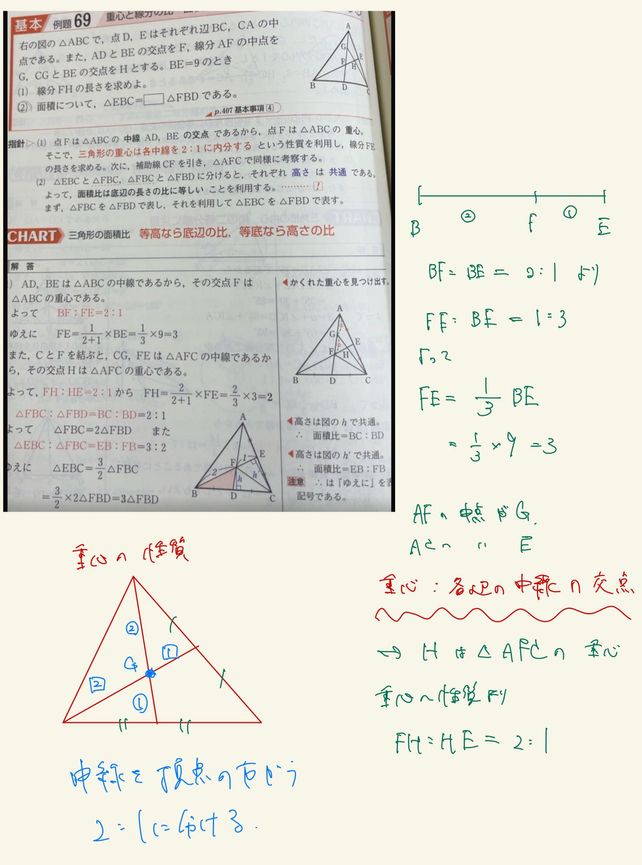 基本 例題 69 重心と線分の比
右の図の△ABCで，点D，Eはそれぞれ辺BC，CAの中
点である。また，ADとBEの交点をF，線分AFの中点を
G，CGとBEの交点をHとする。BE=9のとき
(1) 線分FHの長さを求めよ。
(2) 面積について，△EBC=□△FBDである。
p.407 基本事項 4
A
G
F
H
E
B
D
C
指針 (1) 点Fは△ABCの中線AD，BEの交点であるから，点Fは△ABCの重心。
そこで，三角形の重心は各中線を2：1に内分する という性質を利用し，線分FE
の長さを求める。次に，補助線CFを引き，△AFCで同様に考察する。
(2) △EBCと△FBC，△FBCと△FBDに分けると，それぞれ高さは共通である。
よって，面積比は底辺の長さの比に等しい ことを利用する。………[!]
まず，△FBCを△FBDで表し，それを利用して△EBCを△FBDで表す。
CHART 三角形の面積比 等高なら底辺の比，等底なら高さの比
解答
) AD，BEは△ABCの中線であるから，その交点Fは
△ABCの重心である。
よって BF：FE=2：1
ゆえに FE=1/(2+1)×BE=1/3×9=3
また，CとFを結ぶと，CG，FEは△AFCの中線であるか
ら，その交点Hは△AFCの重心である。
よって，FH：HE=2：1から FH=2/(2+1)×FE=2/3×3=2
△FBC：△FBD=BC：BD=2：1
よって △FBC=2△FBD また
△EBC：△FBC=EB：FB=3：2
ゆえに △EBC=3/2△FBC
=3/2×2△FBD=3△FBD
◀かくれた重心を見つけ出す。
A
G
F
H
E
B
D
C
◀高さは図のhで共通。
∴ 面積比=BC：BD
◀高さは図のh'で共通。
∴ 面積比=EB：FB
注意 ∴は「ゆえに」を表
記号である。
A
F
E
2
1
h'
h
B
D
C
② ①
B F E
BF：BE = 2：1 より
FE：BE = 1：3
よって
FE = 1/3 BE
= 1/3 × 9 = 3
AFの中点がG.
ACの 〃 E
重心：各辺の中線の交点
⇒ Hは△AFCの重心
重心の性質より
FH：HE = 2：1
重心の性質
②
G
①
②
①
中線を頂点の方から
2：1に分ける.